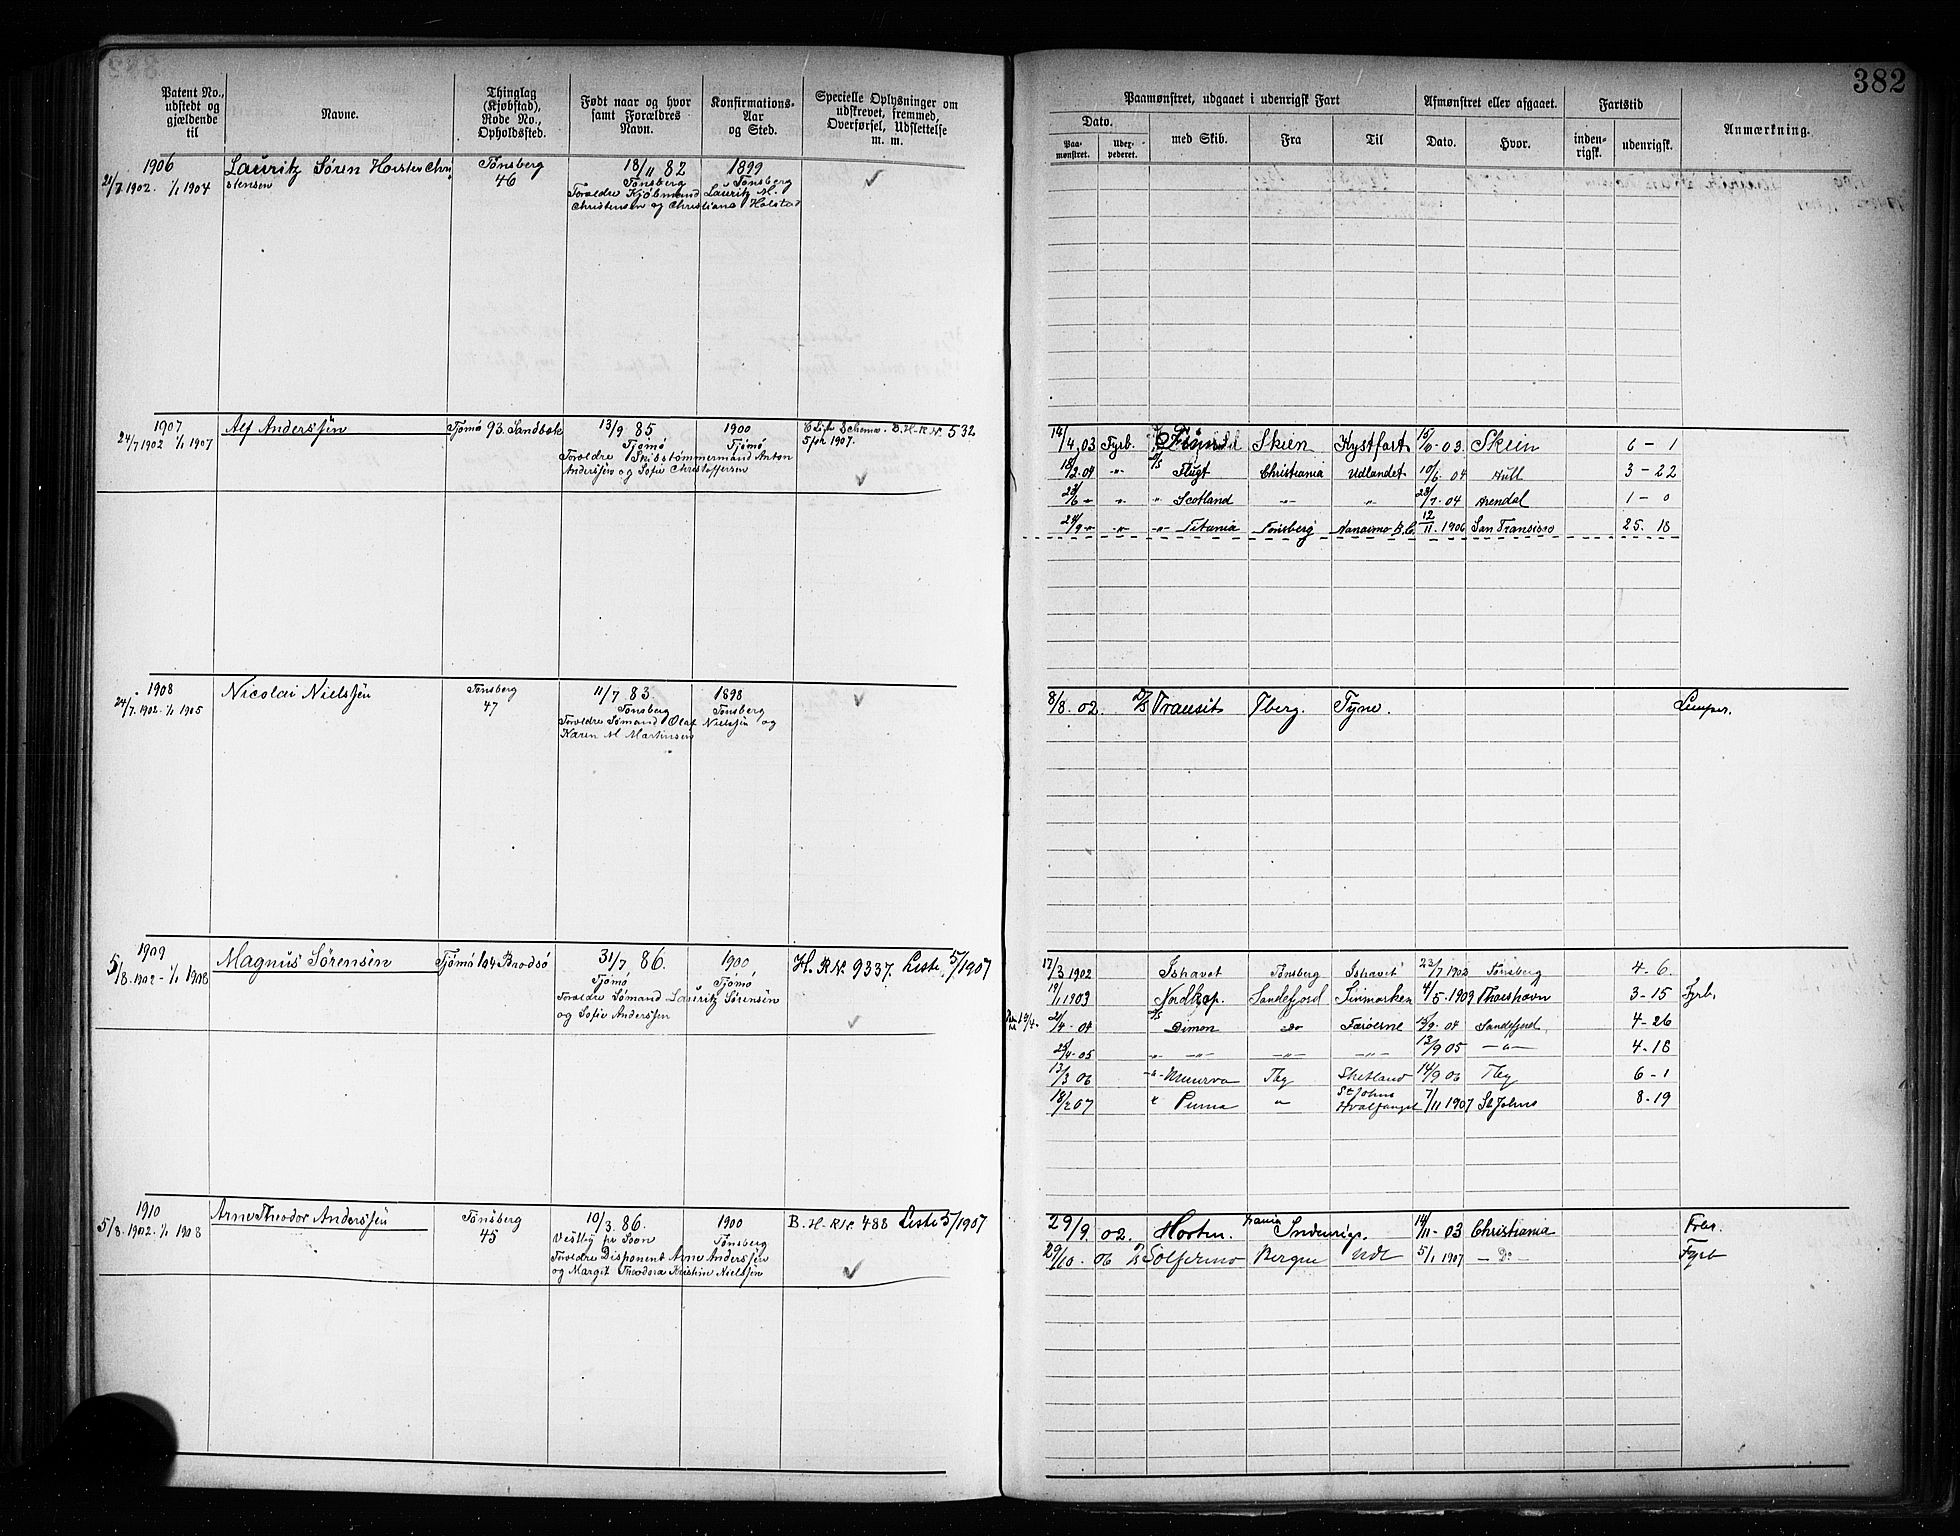 382
Patent No., udstedt og gjældende til
Navne.
Thinglag (Kjøbstad), Rode No., Opholdssted.
Født naar og hvor samt Forældres Navn.
Konfirmations-Aar og Sted.
Specielle Oplysninger om udskrevet, fremmed, Overførsel, Udslettelse m. m.
Paamønstret, udgaaet i udenrigsk Fart
Afmønstret eller afgaaet.
Fartstid
Anmærkning.
Dato.
Paa-mønstret.
Uder-pederet.
med Skib.
Fra
Til
Dato.
Hvor.
inden-rigsk.
udenrigsk.
1906
21/7 1902. 1/1 1904
Lauritz Søren Holster Chri
stensen
Tønsberg
46
18/11 82
Tønsberg
1899
Tønsberg
Forældre Kjøbmand Lauritz M.
Christensen og Christiane Holstad
1907
24/7 1902 1/1 1907
Alf Anderssen
Tjømø 93. Sandbæk
13/9 85
Tjømø
1900
Tjømø
Forældre Skibstømmermand Anton
Anderssen og Sofie Christoffersen
B.H.R.N. 532
5 for 1907.
14/4 03 Fyrb. Skien Kystfart 15/6 03. Skien 6 - 1
15/2 04 " D/S Flugt Christiania Udlandet 10/6 04 Hull 3 - 22
23/6 " " " Scotland " " 23/7 04 Arendal 1 - 0
24/9 " " " Titania Tønsberg Nanaimo B.C. 12/11 1906 San Fransisco 25. 18
1908
24/7 1902 - 1/1 1905
Nicolai Nielssen
Tønsberg
47
11/7 83.
Tønsberg
1898
Tønsberg
Forældre Sømand Olaf Nielssen og
Karen M Martinsen
8/8. 02. D/S Transit Tberg. Tyne. Lemper.
1909
5/8 1902 - 1/1 1908
Magnus Sørensen
Tjømø 104 Brodsø
31/7 86.
Tjømø
1900
Tjømø
Forældre Sømand Lauritz Sørensen
og Sofie Anderssen
H. RN. 9337. Liste 5/1907
17/3 1902 Ishavet Tønsberg Ishavet 23/7 1902 Tønsberg 4 - 6
19/1 1903 Nordkap. Sandefjord Finmarken 4/5 1903 Thorshavn 3 - 15 Fyrb.
21/4 04 D/S Dimon Do Færøerne 15/9 04 Sandefjord. 4 - 26
25/4 05 " " " " 12/9 05 " 4 - 18
13/3 06 " Minerva Tbg Shetland 14/9 06 Tbg 6 - 1
18/2 07 " Puma " St Johns Hvalfangst 7/11 1907 St Johns 8 - 19
1910
5/8 1902. 1/1 1908
Arne Theodor Anderssen
Tønsberg
45
10/3. 86.
Vestby pr Soon
1900
Tønsberg
Forældre Disponent Arne Anderssen
og Margit Theodora Kristine Nielssen
B. H. RN. 488 Liste 5/1907
29/9 02. Horten. Indenrigs. 14/11 03 Christiania
29/10. 06 D/S Solferino Bergen Udl 5/1 1907 - Do - Fyrb